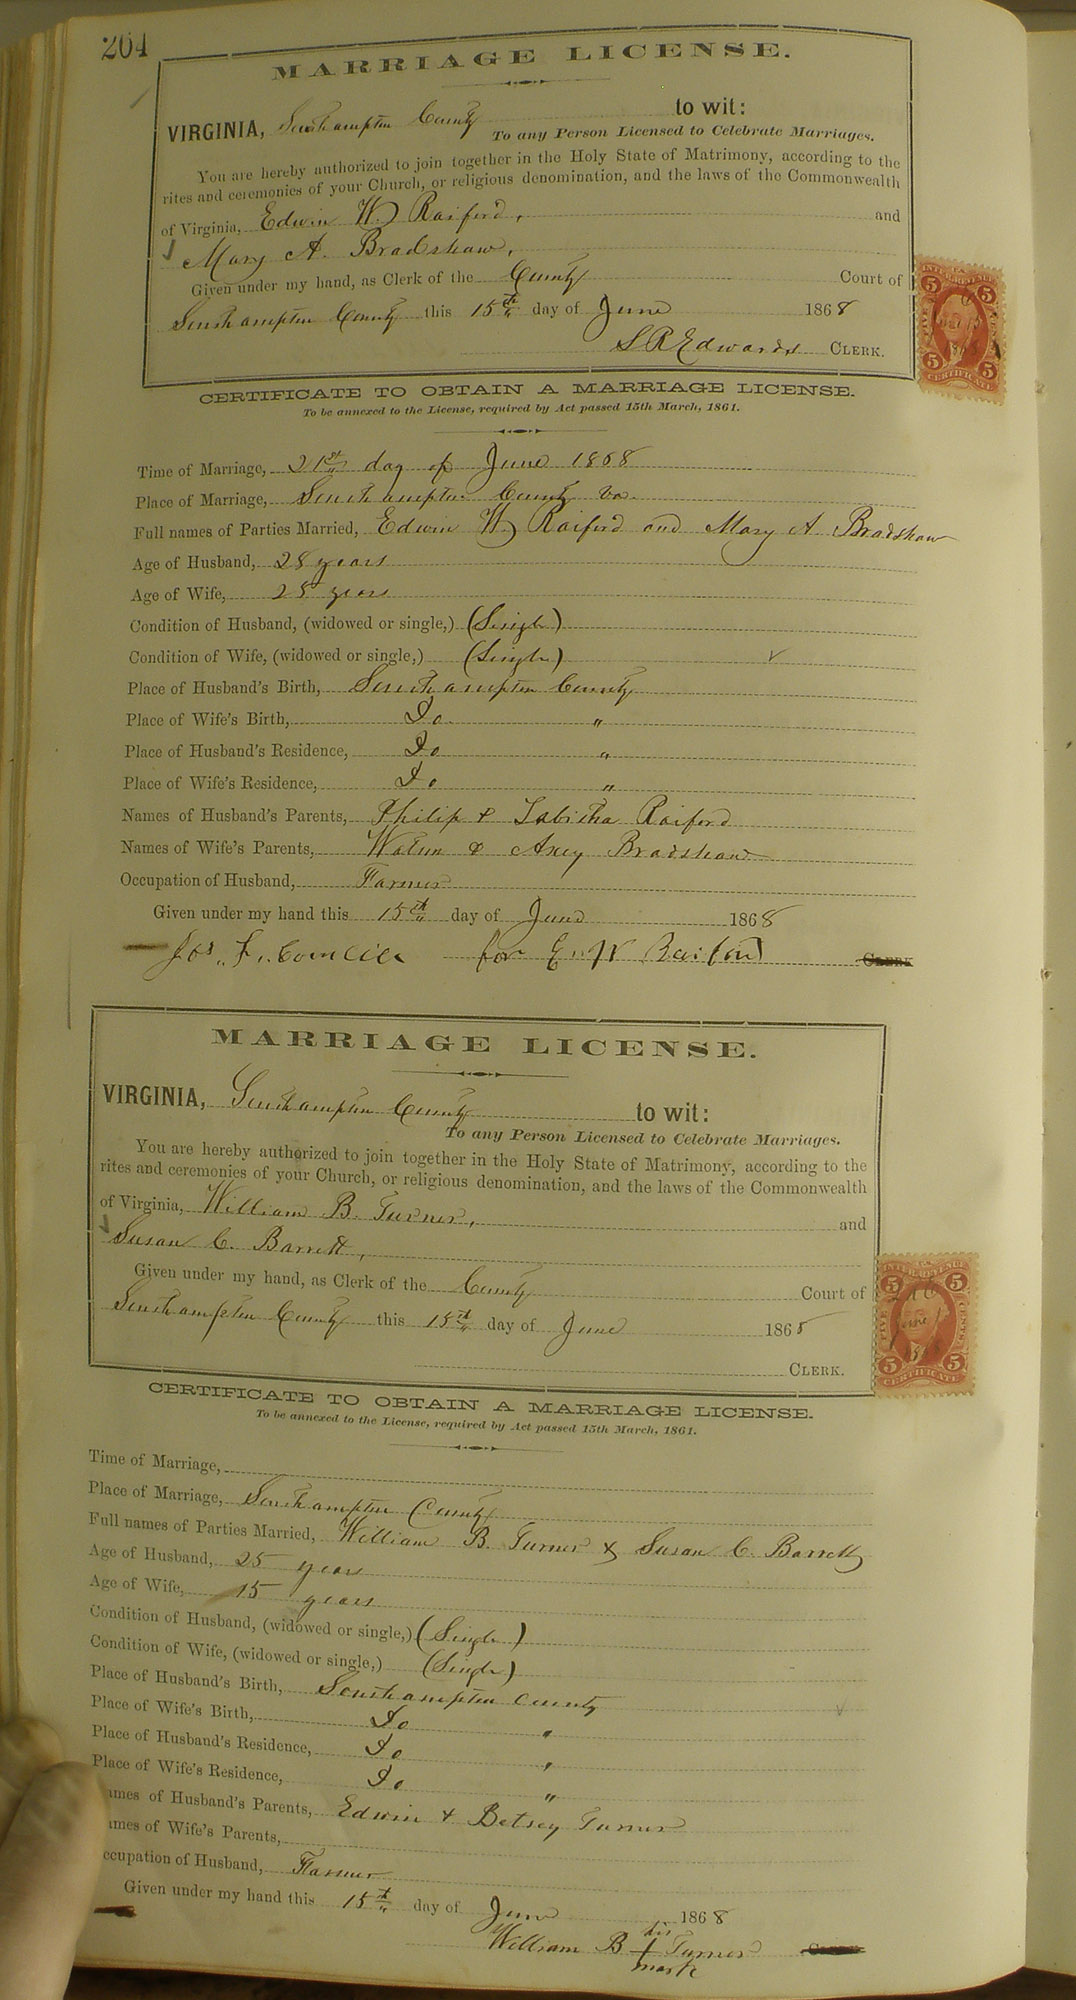 204
MARRIAGE LICENSE.
VIRGINIA, Southampton County to wit:
To any Person Licensed to Celebrate Marriages.
You are hereby authorized to join together in the Holy State of Matrimony, according to the
rites and ceremonies of your Church, or religious denomination, and the laws of the Commonwealth
of Virginia, Edwin W. Raiford, and
Mary A. Bradshaw,
Given under my hand, as Clerk of the County Court of
Southampton County this 15th day of June 1868
S R Edwards CLERK.
CERTIFICATE TO OBTAIN A MARRIAGE LICENSE.
To be annexed to the License, required by Act passed 15th March, 1861.
Time of Marriage, 21st day of June 1868
Place of Marriage, Southampton County Va.
Full names of Parties Married, Edwin W. Raiford and Mary A Bradshaw
Age of Husband, 28 years
Age of Wife, 28 years
Condition of Husband, (widowed or single,) (Single)
Condition of Wife, (widowed or single,) (Single)
Place of Husband's Birth, Southampton County
Place of Wife's Birth, Do "
Place of Husband's Residence, Do "
Place of Wife's Residence, Do "
Names of Husband's Parents, Philip & Tabitha Raiford
Names of Wife's Parents, & Axey Bradshaw
Occupation of Husband, Farmer
Given under my hand this 15th day of June 1868
Jos. F. for E. W Raiford CLERK
MARRIAGE LICENSE.
VIRGINIA, Southampton County to wit:
To any Person Licensed to Celebrate Marriages.
You are hereby authorized to join together in the Holy State of Matrimony, according to the
rites and ceremonies of your Church, or religious denomination, and the laws of the Commonwealth
of Virginia, William B. Turner, and
Susan C. Barrett,
Given under my hand, as Clerk of the County Court of
Southampton County this 15th day of June 1868
CLERK.
CERTIFICATE TO OBTAIN A MARRIAGE LICENSE.
To be annexed to the License, required by Act passed 15th March, 1861.
Time of Marriage,
Place of Marriage, Southampton County
Full names of Parties Married, William B. Turner & Susan C. Barrett
Age of Husband, 25 years
Age of Wife, 15 years
Condition of Husband, (widowed or single,) (Single)
Condition of Wife, (widowed or single,) (Single)
Place of Husband's Birth, Southampton County
Place of Wife's Birth, Do "
Place of Husband's Residence, Do "
Place of Wife's Residence, Do "
ames of Husband's Parents, Edwin & Betsey Turner
ames of Wife's Parents,
ccupation of Husband, Farmer
Given under my hand this 15th day of June 1868
his
William B + Turner
mark